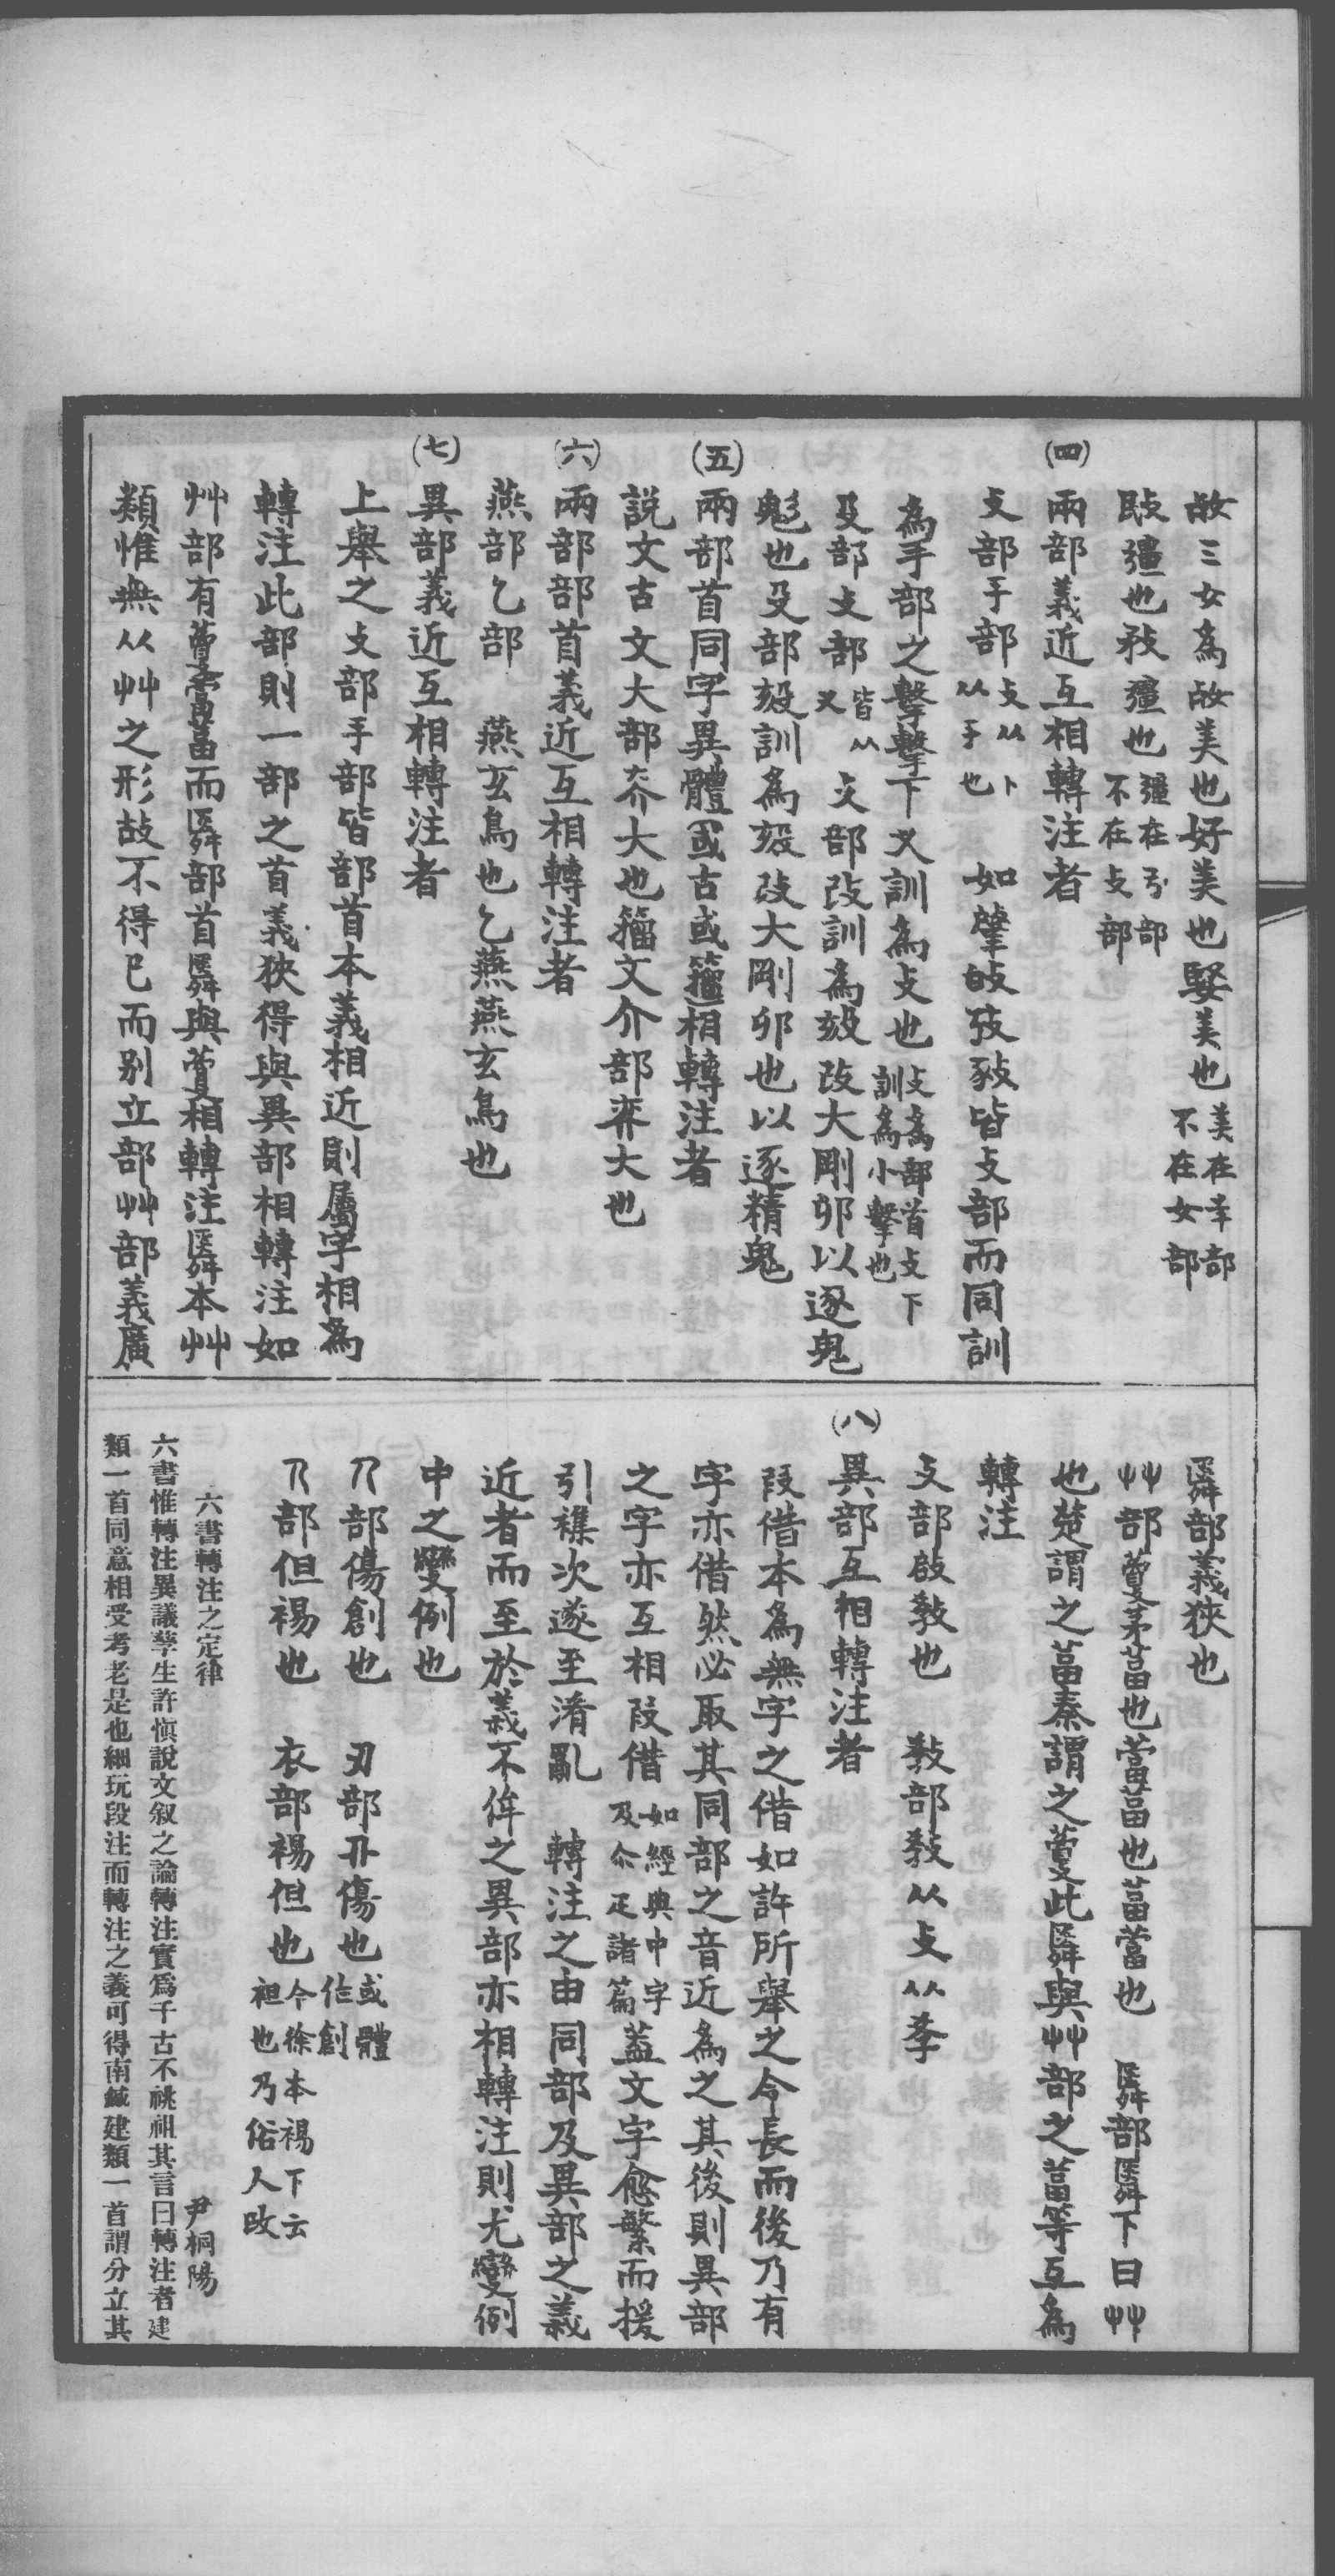 三女為㚣美也好美也娶美也美在羊部不在女部
敃彊也敄彊也彊在弓部不在攴部
(四)兩部義近互相轉注者
攴部手部攴从卜从手也 如肇皆攴部而同訓
為手部之擊擊下又訓為攴也攴為部首攴下訓為小擊也
殳部攴部皆从又 攴部改訓為改大剛卯以逐鬼
鬽也殳部訓為改大剛卯也以逐精鬼
(五)兩部首同字異體國古或籒相轉注者
説文古文大部夰大也籀文介部弈大也
(六)兩部部首義近互相轉注者
燕部乞部 燕玄鳥也乞燕燕玄鳥也
(七)異部義近互相轉注者
上舉之攴部手部皆部首本義相近則屬字相為
轉注此部則一部之首義狹得與異部相轉注如
艸部有藑葍而䑞部首䑞與藑相轉注䑞本艸
類惟無从艸之形故不得已而別立部艸部義廣
䑞部義狹也
艸部藑茅葍也葍也葍也 䑞部䑞下曰艸
也楚謂之葍秦謂之藑此䑞與艸部之葍等互為
轉注
攴部敎也 敎部敎从攴从孝
(八)異部互相轉注者
叚借本為無字之借如許所舉之令長而後乃有
字亦借然必取其同部之音近為之其後則異部
之字亦互相叚借如經典中字及介疋諸篇蓋文字愈繁而援
引襍次遂至淆亂 轉注之由同部及異部之義
近者而至於義不侔之異部亦相轉注則尤變例
中之變例也
部傷創也 刃部刅傷也或體作創
部但裼也 衣部裼但也今徐本裼下云袒也乃俗人改
六書轉注之定律 尹桐陽
六書惟轉注異議孳生許愼說文叙之論轉注實爲千古不祧祖其言曰轉注者建
類一首同意相受考老是也細玩段注而轉注之義可得南緘建類一首謂分立其